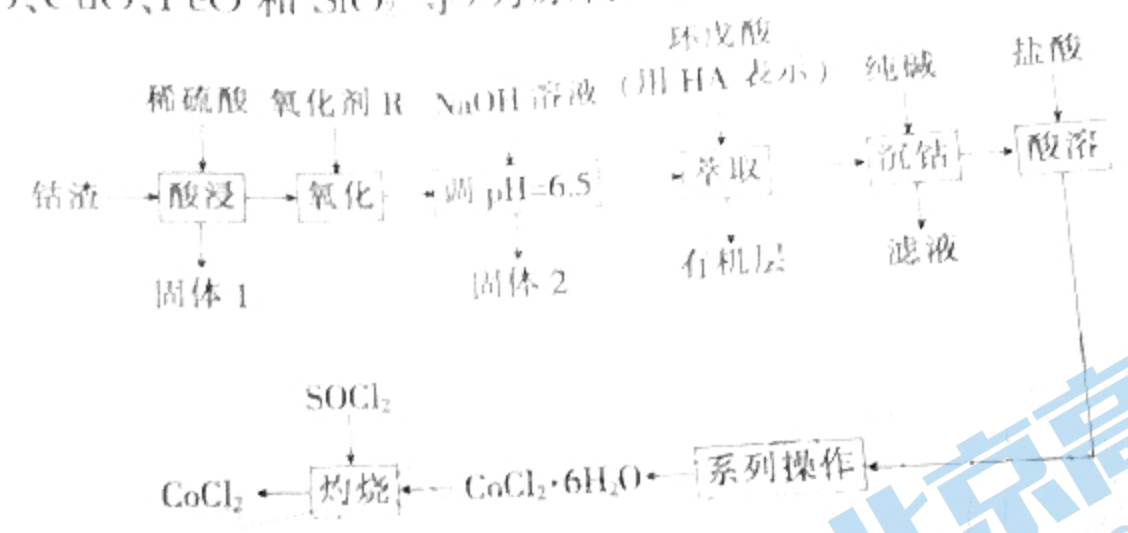 FeO 和 SiO₂
稀硫酸 氧化剂 R NaOH 溶液 环戊酸 (用 HA 表示) 纯碱 盐酸
钴渣 酸浸 氧化 调 pH=6.5 萃取 沉钴 酸溶
固体 1 固体 2 有机层 滤液
SOCl₂
CoCl₂ 灼烧 CoCl₂·6H₂O 系列操作
北京高